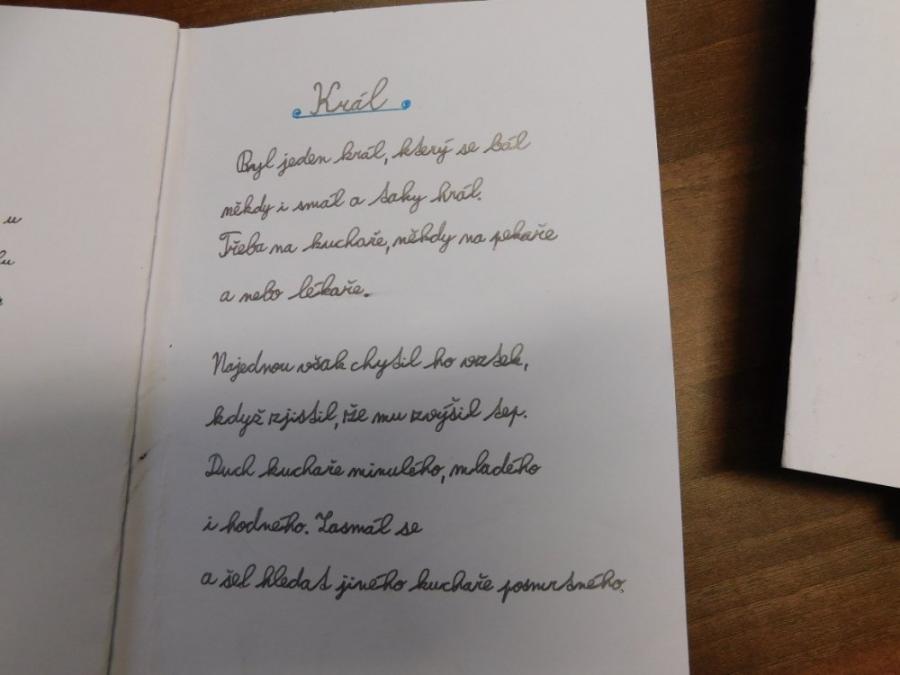 u
Král
Byl jeden král, který se bál
někdy i smál a taky hrál.
Třeba na kuchaře, někdy na pekaře
a nebo lékaře.
Najednou však chytil ho vztek,
když zjistil, že mu zvýšil tep.
Duch kuchaře minulého, mladého
i hodného. Zasmál se
a šel hledat jiného kuchaře posmrtného.